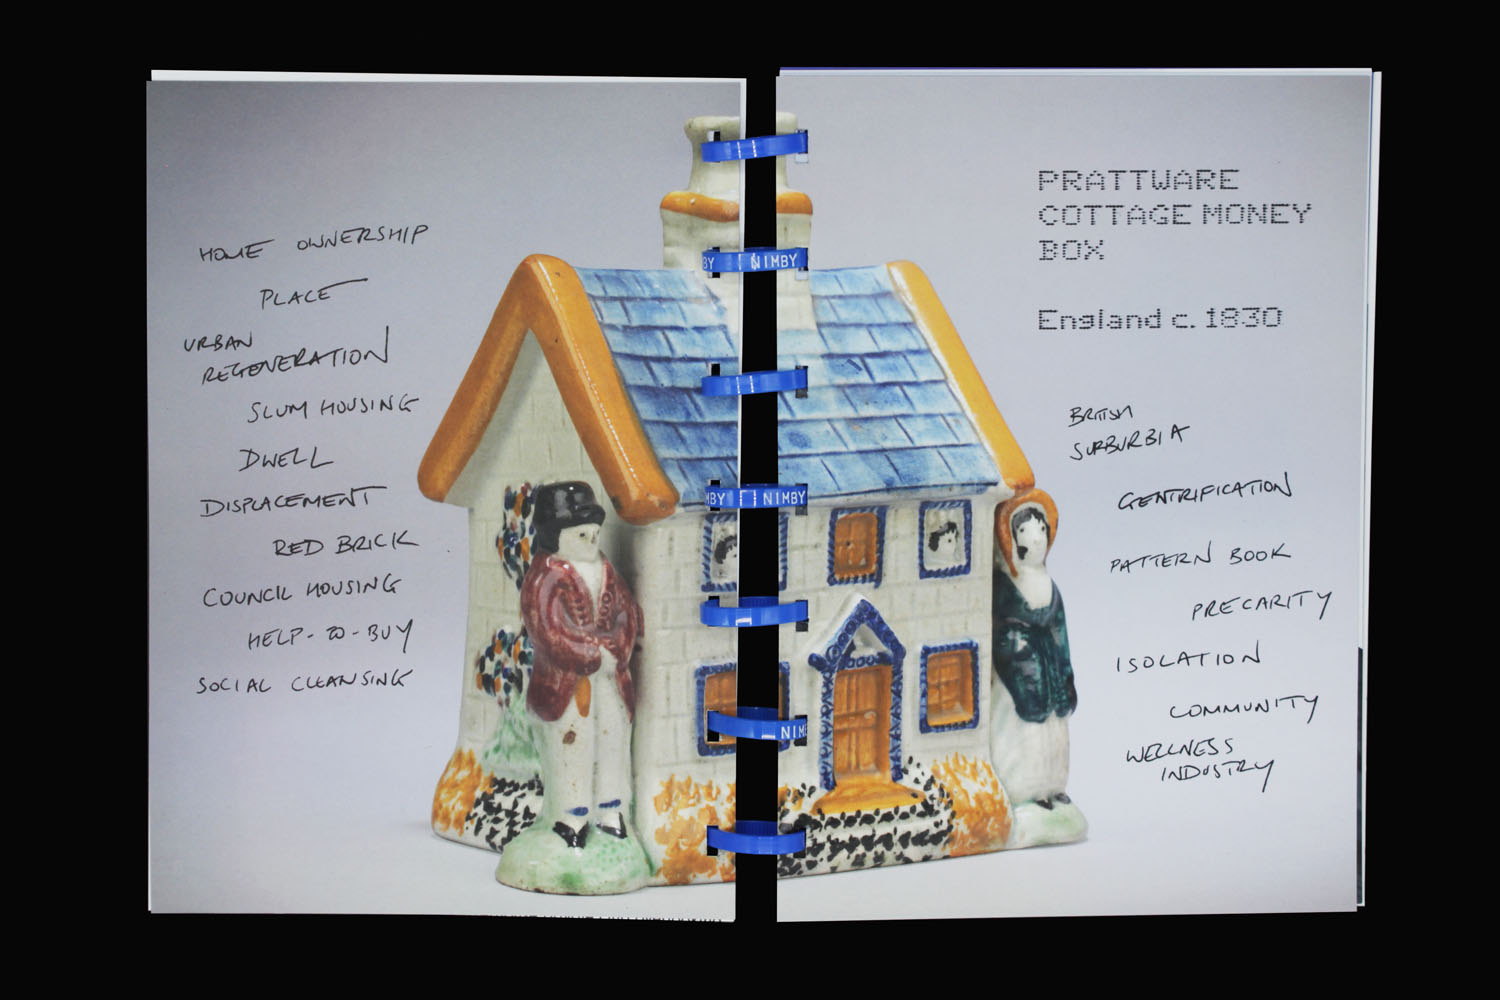 HOME OWNERSHIP
PLACE
URBAN
REGENERATION
SLUM HOUSING
DWELL
DISPLACEMENT
RED BRICK
COUNCIL HOUSING
HELP-TO-BUY
SOCIAL CLEANSING
BY NIMBY
MBY NIMBY
NIM
PRATTWARE
COTTAGE MONEY
BOX
England c. 1830
BRITISH
SURBURBIA
GENTRIFICATION
PATTERN BOOK
PRECARITY
ISOLATION
COMMUNITY
WELLNESS
INDUSTRY